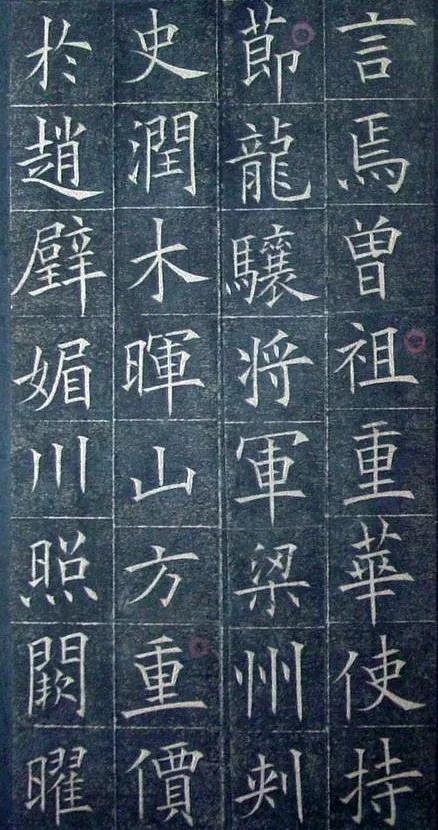 言焉曾祖重華使持
節龍驤將軍梁州刺
史潤木暉山方重價
於趙璧媚川照闕曜